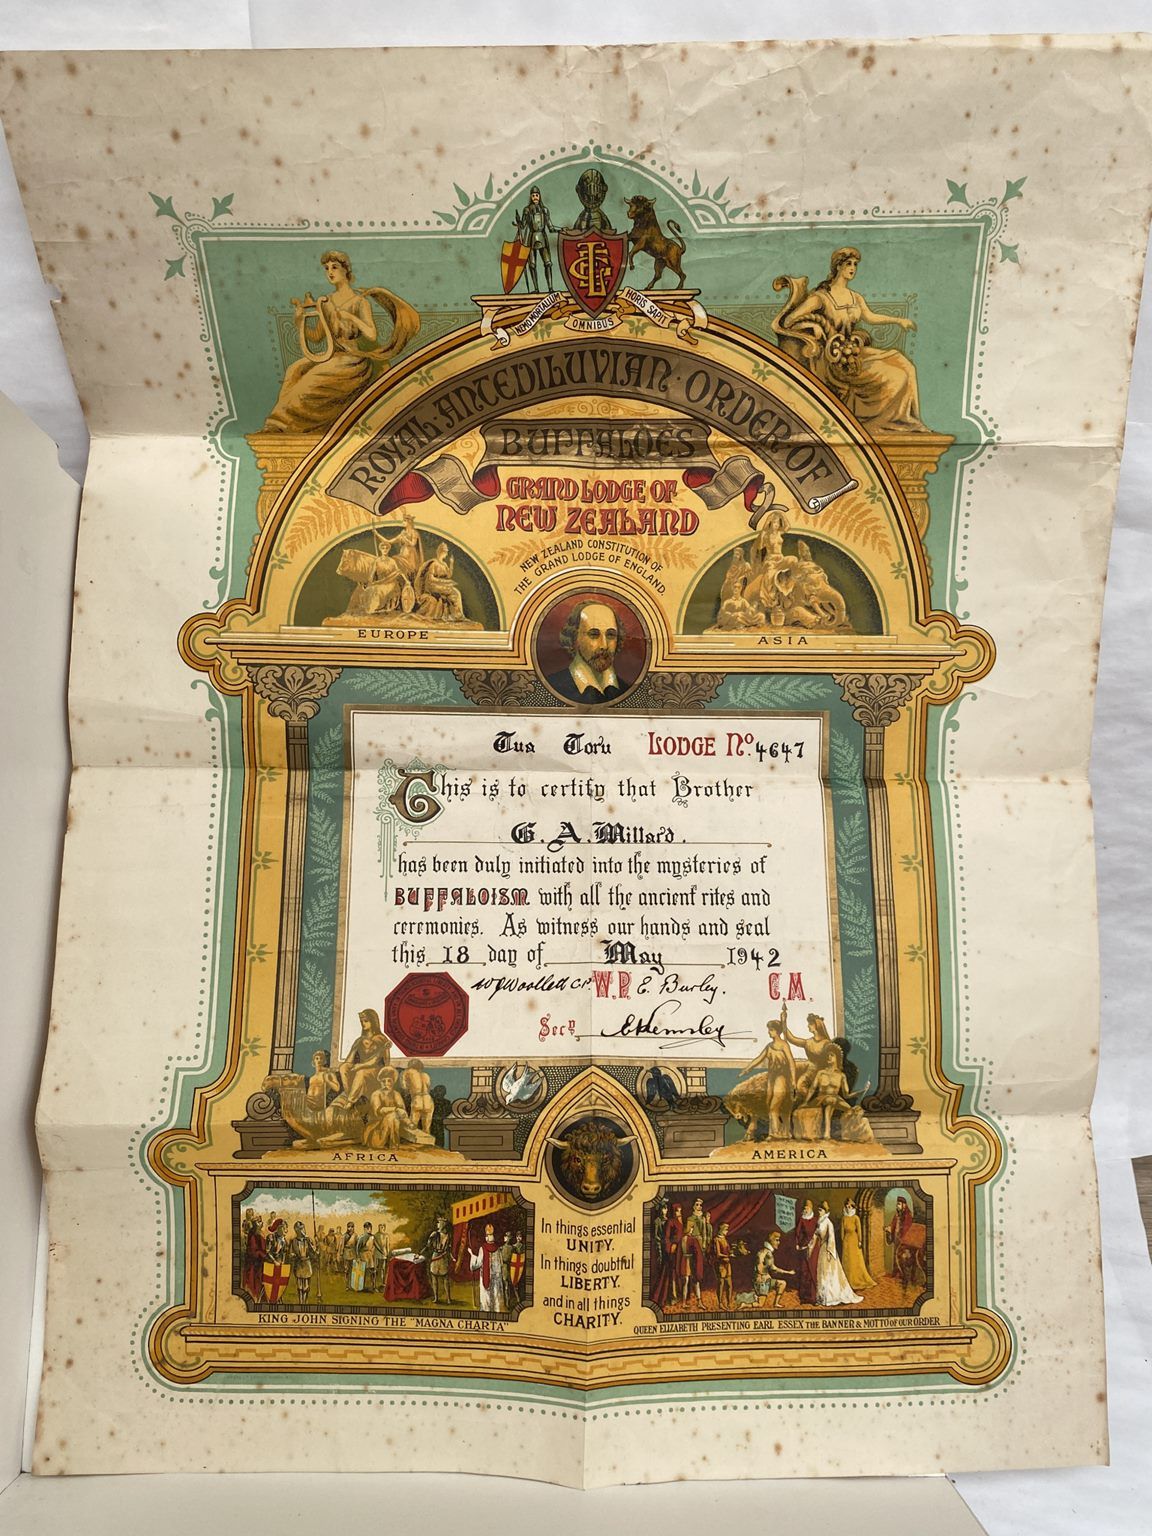 NEMO MORTALIUM OMNIBUS HORIS SAPIT
ROYAL ANTEDILUVIAN ORDER OF
BUFFALOES
GRAND LODGE OF
NEW ZEALAND
NEW ZEALAND CONSTITUTION OF
THE GRAND LODGE OF ENGLAND.
EUROPE
ASIA
Tua Toru LODGE No. 4647
This is to certify that Brother
G. A. Millard.
has been duly initiated into the mysteries of
BUFFALOISM with all the ancient rites and
ceremonies. As witness our hands and seal
this 18 day of May 1942
W.P. E. Burley. C.M.
Secy
AFRICA
AMERICA
In things essential
UNITY.
In things doubtful
LIBERTY.
and in all things
CHARITY.
KING JOHN SIGNING THE "MAGNA CHARTA"
QUEEN ELIZABETH PRESENTING EARL ESSEX THE BANNER & MOTTO OF OUR ORDER